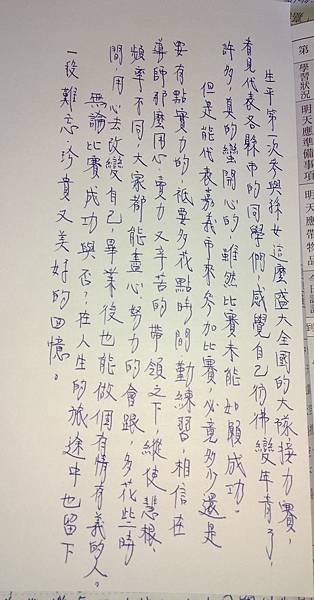 第 學習狀況 明天應準備事項 明天應帶物品
生平第一次參與孫女這麼盛大全國的大隊接力賽,
看見代表各縣市的同學們,感覺自己彷彿變年青了,
許多,真的蠻開心的,雖然比賽未能如願成功。
但是能代表嘉義市來參加比賽,必竟多少還是
要有點實力的,祗要多花點時間勤練習,相信在
導師那麼用心、賣力又辛苦的帶領之下,縱使慧根、
頻率不同,大家都能盡心努力的會跟,多花些時
間,用心去改變自己,畢業後也能做個有情有義的人。
無論比賽成功與否?在人生的旅途中也留下
一段難忘、珍貴又美好的回憶。